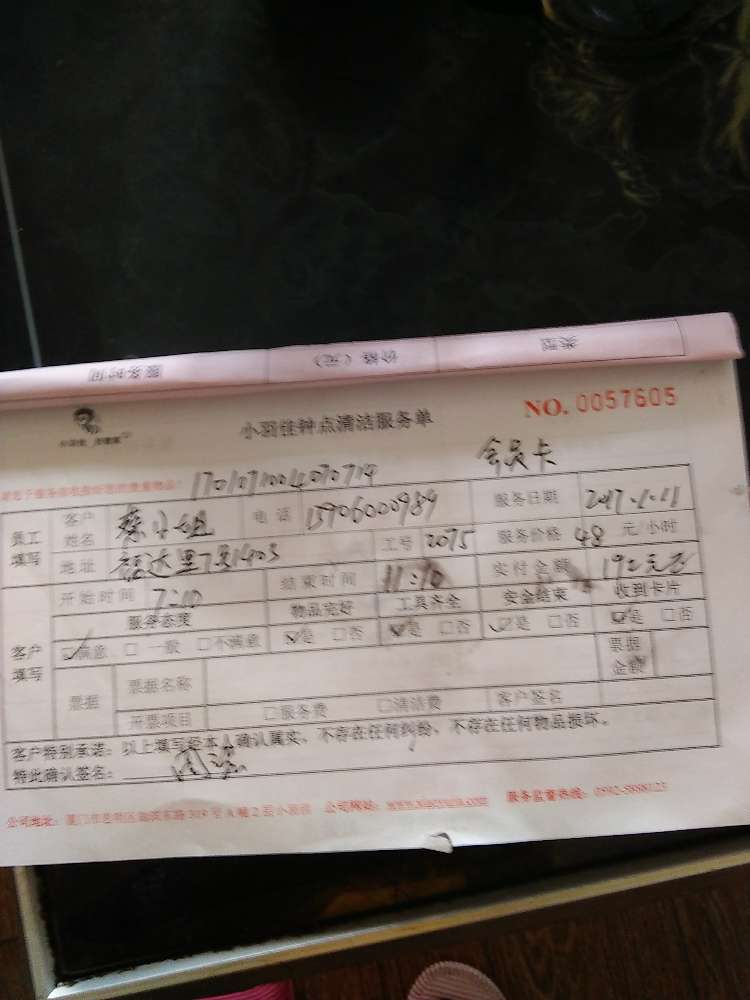 服务时间 价格（元） 类型
小羽佳钟点清洁服务单 NO. 0057605
会员卡
1701071004070714
员工填写 客户姓名 蔡小姐 电话 13906000989 服务日期 2017.1.11
地址 福达里7号1403 工号 2075 服务价格 48 元/小时
开始时间 7:10 结束时间 11:10 实付金额 192元
客户填写 服务态度 物品完好 工具齐全 安全结束 收到卡片
☑满意 □一般 □不满意 ☑是 □否 ☑是 □否 ☑是 □否 ☑是 □否
票据 票据名称 票据金额
开票项目 □服务费 □清洁费 客户签名
客户特别承诺：以上填写经本人确认属实、不存在任何纠纷、不存在任何物品损坏。
特此确认签名：
公司地址： 公司网站： 服务监督热线：0592-5888123